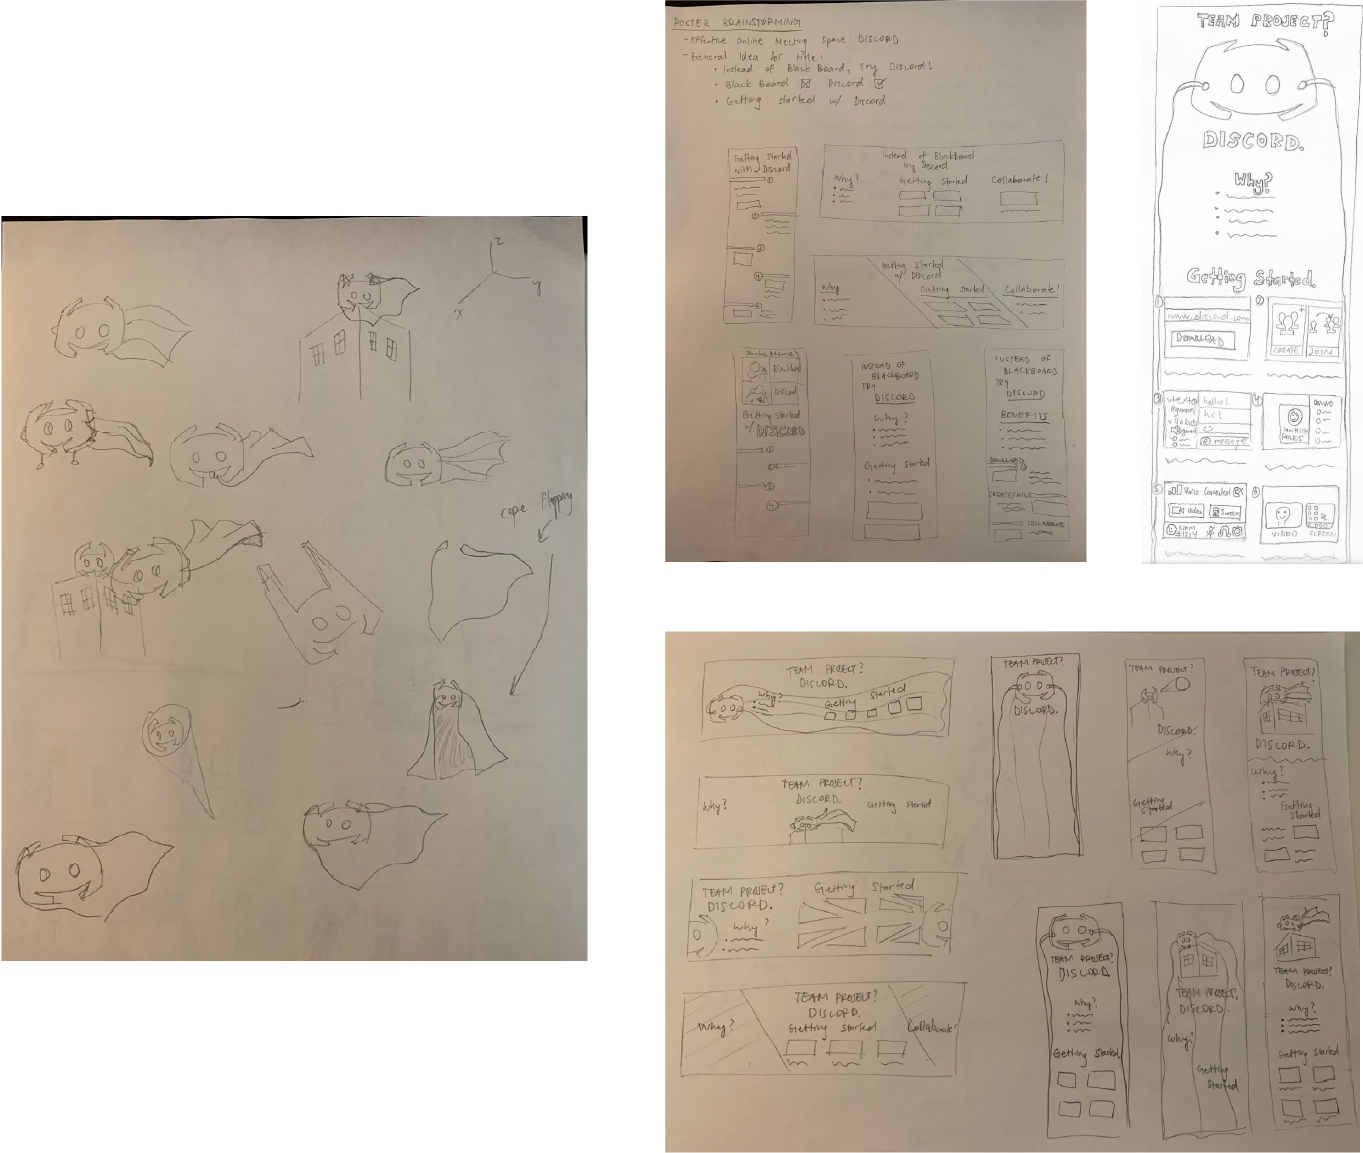 z
y
x
cape flapping
POSTER BRAINSTORMING
- Effective Online Meeting Space: DISCORD
- General Idea for title:
• Instead of Black Board, Try Discord!
• Black Board ☒ Discord ☑
• Getting started w/ Discord
Getting Started
with Discord
Instead of BlackBoard
try Discord
Why?
Getting Started
Collaborate!
Getting Started
w/ Discord
Why
Getting Started
Collaborate!
Discord
Getting Started
w/ DISCORD
INSTEAD OF
BLACKBOARD
TRY
DISCORD
Why?
Getting Started
INSTEAD OF
BLACKBOARD
TRY
DISCORD
BENEFITS
DOWNLOAD
COLLABORATE
TEAM PROJECT?
DISCORD.
Why?
Getting Started.
1
www.discord.com
DOWNLOAD
2
CREATE
JOIN
3
hello!
hi!
message
4
ROLES
5
Voice Connected
Video
Screen
6
VIDEO
SCREEN
TEAM PROJECT?
DISCORD.
Why?
Getting Started
TEAM PROJECT?
DISCORD.
TEAM PROJECT?
DISCORD.
Why?
Getting Started
TEAM PROJECT?
DISCORD.
Why?
Getting Started
Why?
TEAM PROJECT?
DISCORD.
Getting Started
TEAM PROJECT?
DISCORD.
Why?
Getting Started
TEAM PROJECT?
DISCORD.
Why?
Getting Started
TEAM PROJECT?
DISCORD.
Why?
Getting Started
TEAM PROJECT?
DISCORD.
Why?
Getting Started
Why?
TEAM PROJECT?
DISCORD.
Getting Started
Collaborate!